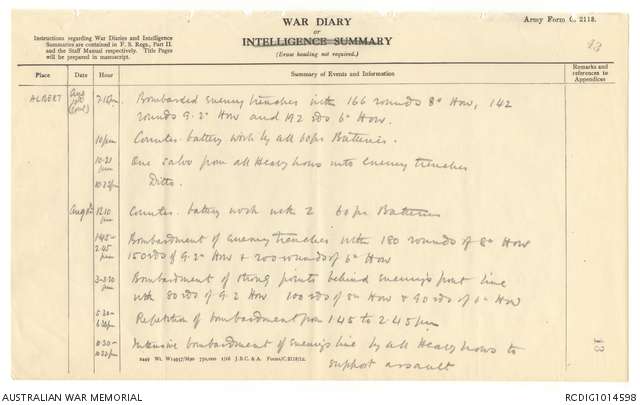 WAR DIARY
or
INTELLIGENCE SUMMARY
(Erase heading not required.)
Army Form C. 2118.
Instructions regarding War Diaries and Intelligence
Summaries are contained in F. S. Regs., Part II.
and the Staff Manual respectively. Title Pages
will be prepared in manuscript.
Place
Date
Hour
Summary of Events and Information
Remarks and
references to
Appendices
ALBERT Aug Bombarded enemy trenches with 166 rounds 8" How, 142
rounds 9.2" How and 192 rds 6" How.
10pm Counter-battery work by all 60pr Batteries.
10.21 pm One salvo from all Heavy hows into enemy trenches
Ditto.
Aug 12.10 pm Counter-battery work with 2 60pr Batteries
1.45-2.45 pm Bombardment of enemy trenches with 180 rounds of 8" How
150 rds of 9.2" How & 200 rounds of 6" How
3-3.30 pm Bombardment of strong points behind enemy's front line
with 80 rds of 9.2 How 100 rds of 8" How & 90 rds of 6" How
5.30- Repetition of bombardment from 1.45 to 2.45pm
Intensive bombardment of enemy's line by all Heavy hows to
support assault
2449 Wt. W14957/M90 750,000 1/16 J.B.C. & A. Forms/C.2118/12.
AUSTRALIAN WAR MEMORIAL
RCDIG1014598